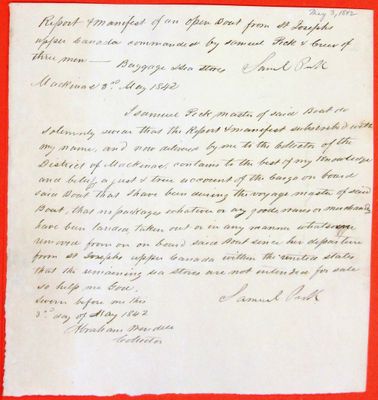 May 3, 1842
Report & Manifest of an open Boat from St Josephs
upper Canada commanded by Samuel Peck & Crew of
three men — Baggage & Sea Stores Samuel Peck
Mackinac 3rd May 1842
I Samuel Peck, master of said Boat do
solemnly swear that the Report & manifest subscribed with
my name, and now delivered by me to the Collector of the
District of Mackinac, contains to the best of my knowledge
and belief a just & true account of the Cargo on board
said Boat that I have been during the voyage master of said
Boat, that no packages whatever or any goods wares or merchandize
have been landed taken out or in any manner whatsoever
removed from on board said Boat since her departure
from St Josephs upper Canada within the united states
that the remaining sea stores are not intended for sale
so help me God.
Sworn before me this Samuel Peck
3rd day of May 1842
Abraham Wendell
Collector